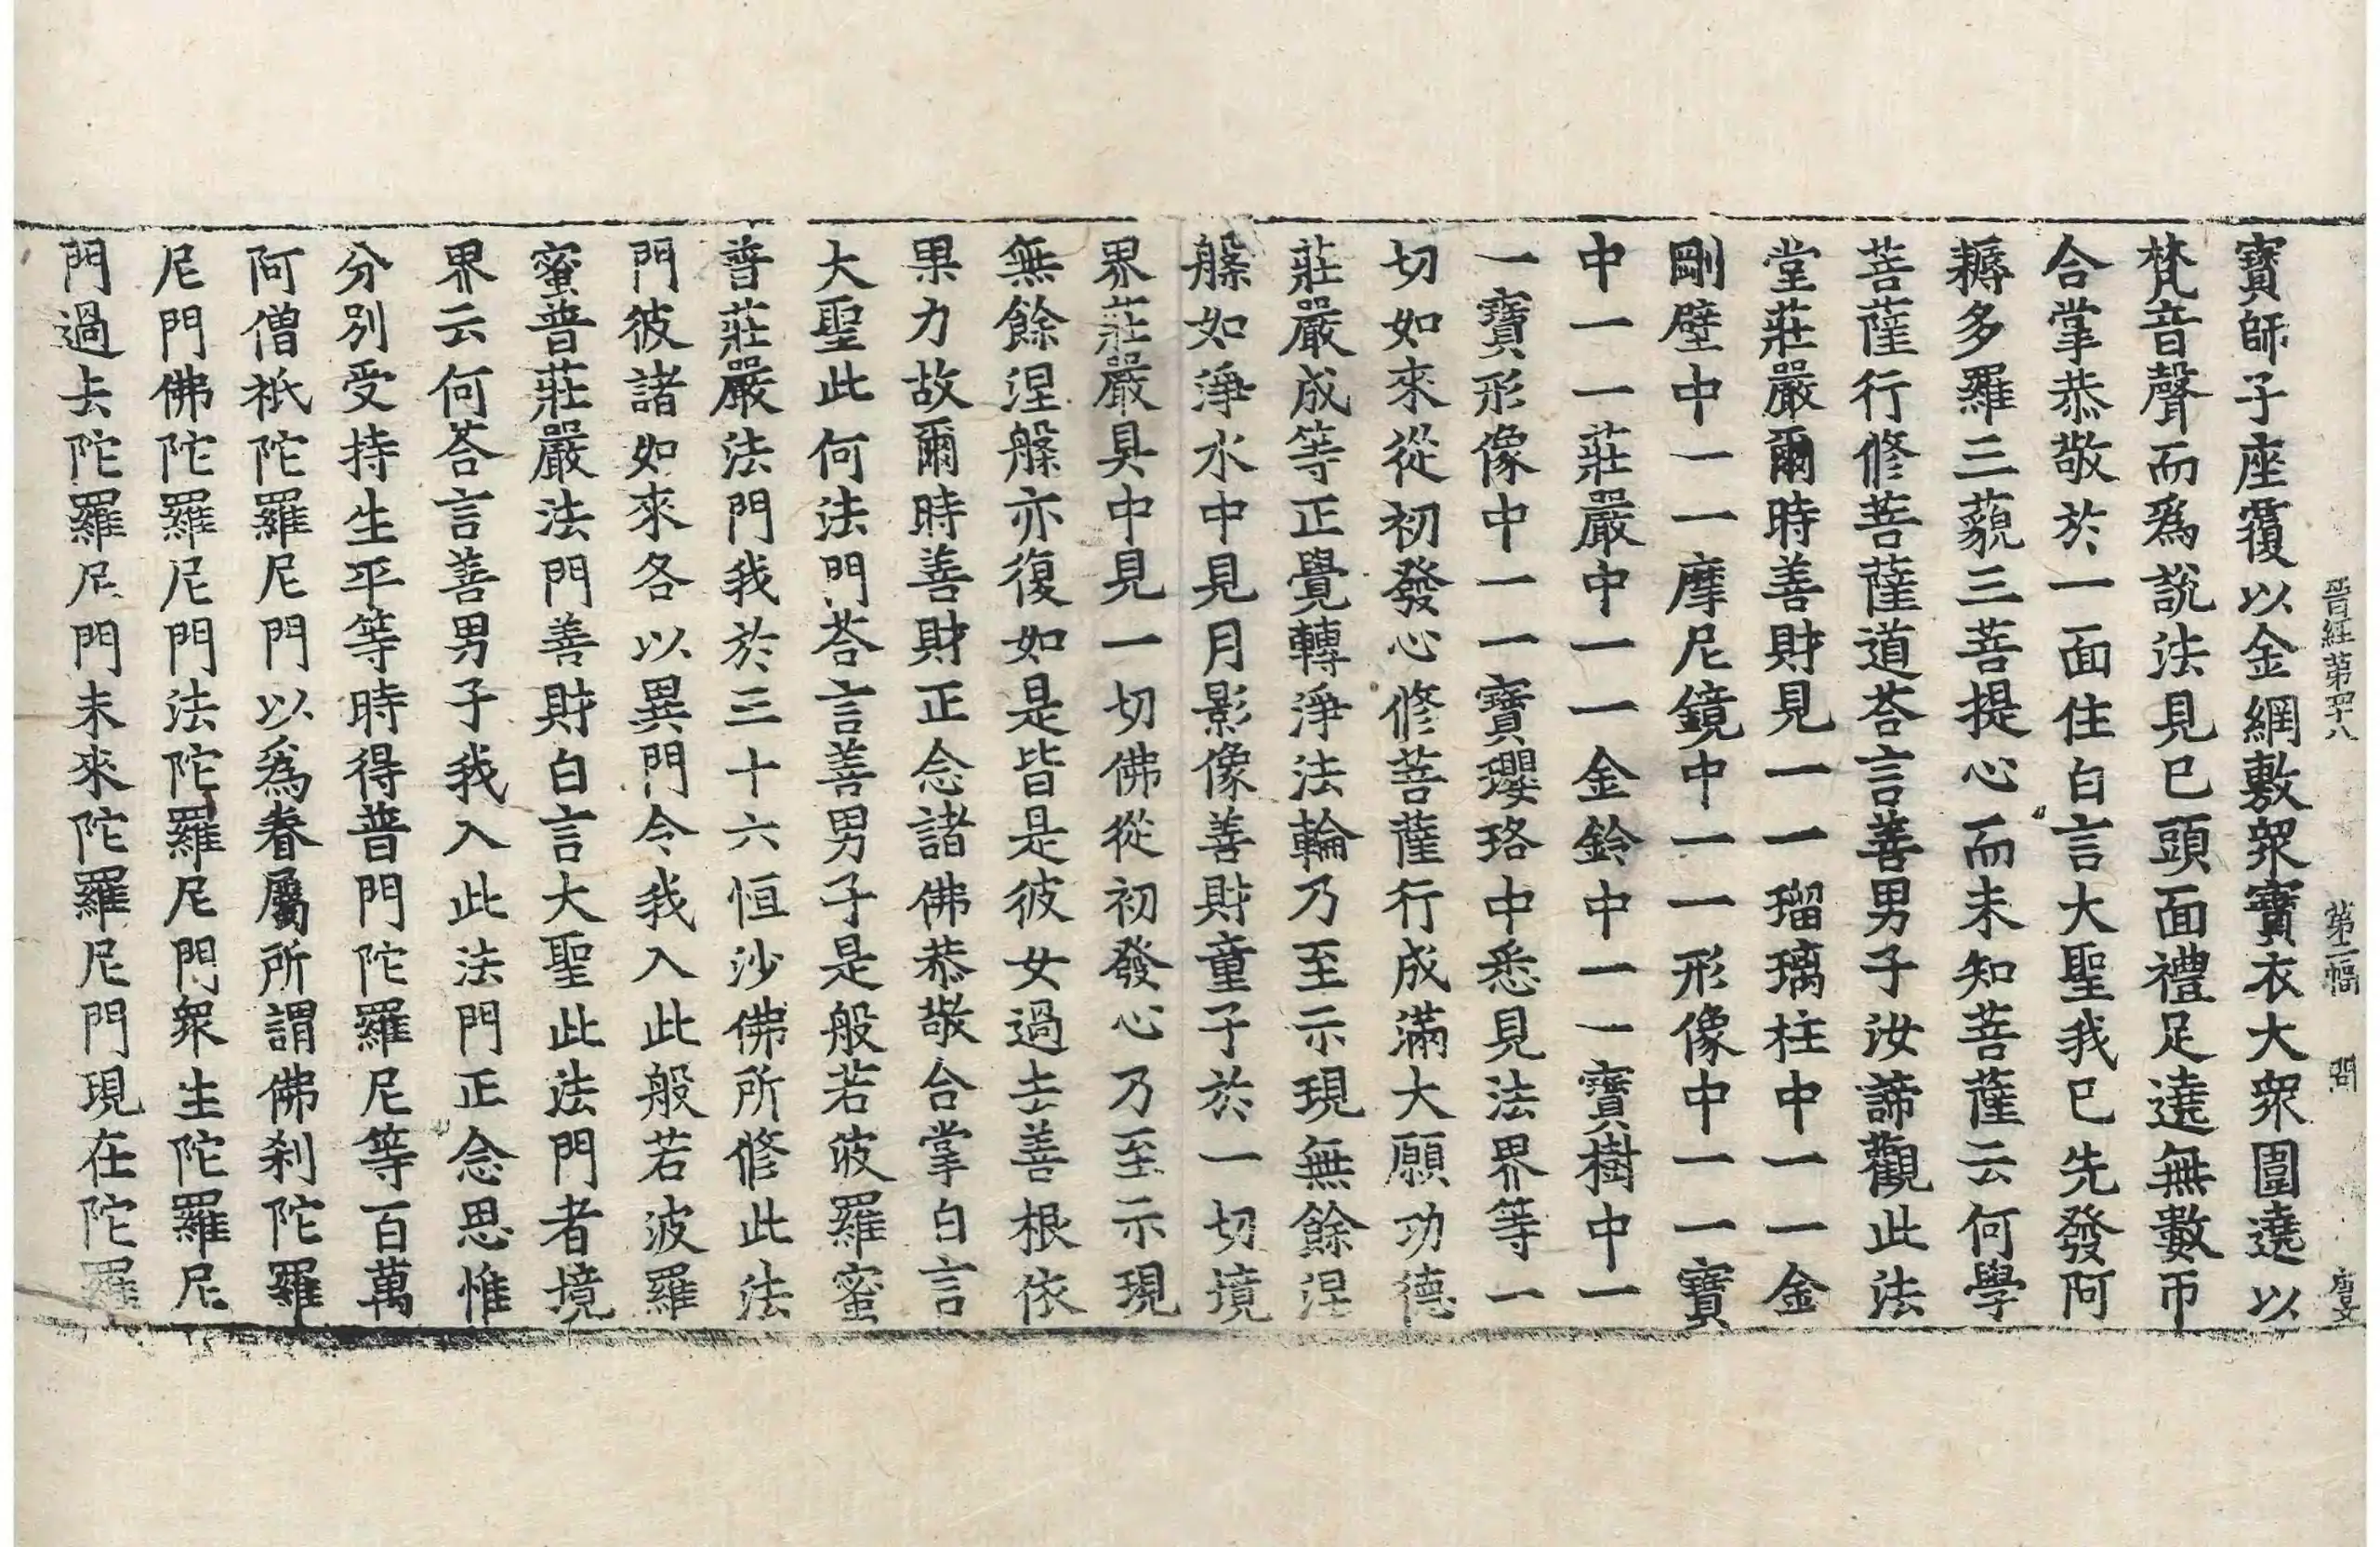 晉經第四十八　第二幅　問　唐文
寶師子座覆以金網敷衆寶衣大衆圍遶以
梵音聲而爲說法見已頭面禮足遶無數帀
合掌恭敬於一面住白言大聖我已先發阿
耨多羅三藐三菩提心而未知菩薩云何學
菩薩行修菩薩道荅言善男子汝諦觀此法
堂莊嚴爾時善財見一一瑠璃柱中一一金
剛壁中一一摩尼鏡中一一形像中一一寶
中一一莊嚴中一一金鈴中一一寶樹中一
一寶形像中一一寶瓔珞中悉見法界等一
切如來從初發心修菩薩行成滿大願功德
莊嚴成等正覺轉淨法輪乃至示現無餘涅
槃如淨水中見月影像善財童子於一切境
界莊嚴具中見一切佛從初發心乃至示現
無餘涅槃亦復如是皆是彼女過去善根依
果力故爾時善財正念諸佛恭敬合掌白言
大聖此何法門荅言善男子是般若波羅蜜
普莊嚴法門我於三十六恒沙佛所修此法
門彼諸如來各以異門令我入此般若波羅
蜜普莊嚴法門善財白言大聖此法門者境
界云何荅言善男子我入此法門正念思惟
分別受持生平等時得普門陀羅尼等百萬
阿僧祇陀羅尼門以爲眷屬所謂佛刹陀羅
尼門佛陀羅尼門法陀羅尼門衆生陀羅尼
門過去陀羅尼門未來陀羅尼門現在陀羅